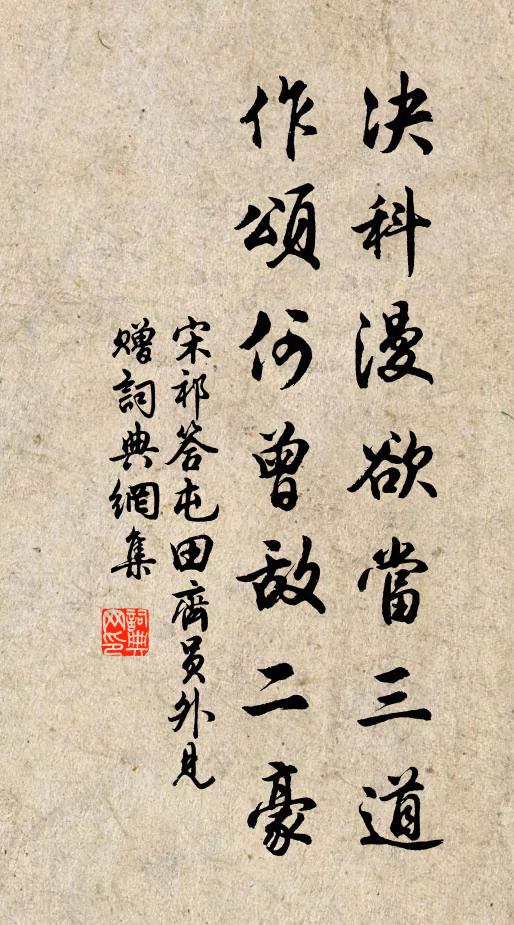 决科漫欲當三道
作頌何曾敵二豪
宋祁答屯田齊員外見
贈詞典網集
詞典
网印